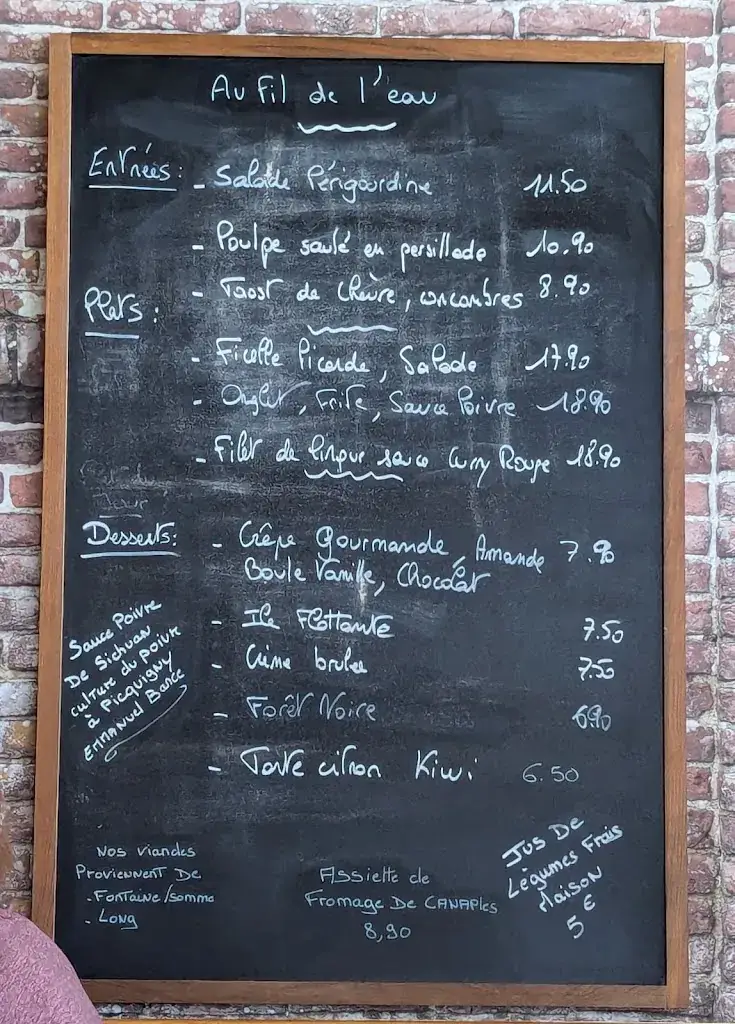 Au Fil de l'eau
Entrées : - Salade Périgourdine 11.50
- Poulpe sauté en persillade 10.90
- Taost de Chèvre, concombres 8.90
Plats :
- Ficelle Picarde, Salade 17.90
- Onglet, Frite, Sauce Poivre 18.90
- Filet de lingue sauce Curry Rouge 18.90
Jour
Desserts : - Crêpe Gourmande, Amande 7.90
Boule Vanille, Chocolat
- Ile Flottante 7.50
- Crème brulee 7.50
- Forêt Noire 6.90
- Tarte citron Kiwi 6.50
Sauce Poivre
De Sichuan
culture du poivre
à Picquigny
Emmanuel Bance
Nos viandes
Proviennent De
- Fontaine/somme
- Long
Assiette de
Fromage De CANAPles
8,90
Jus De
Légumes Frais
Maison
5 €